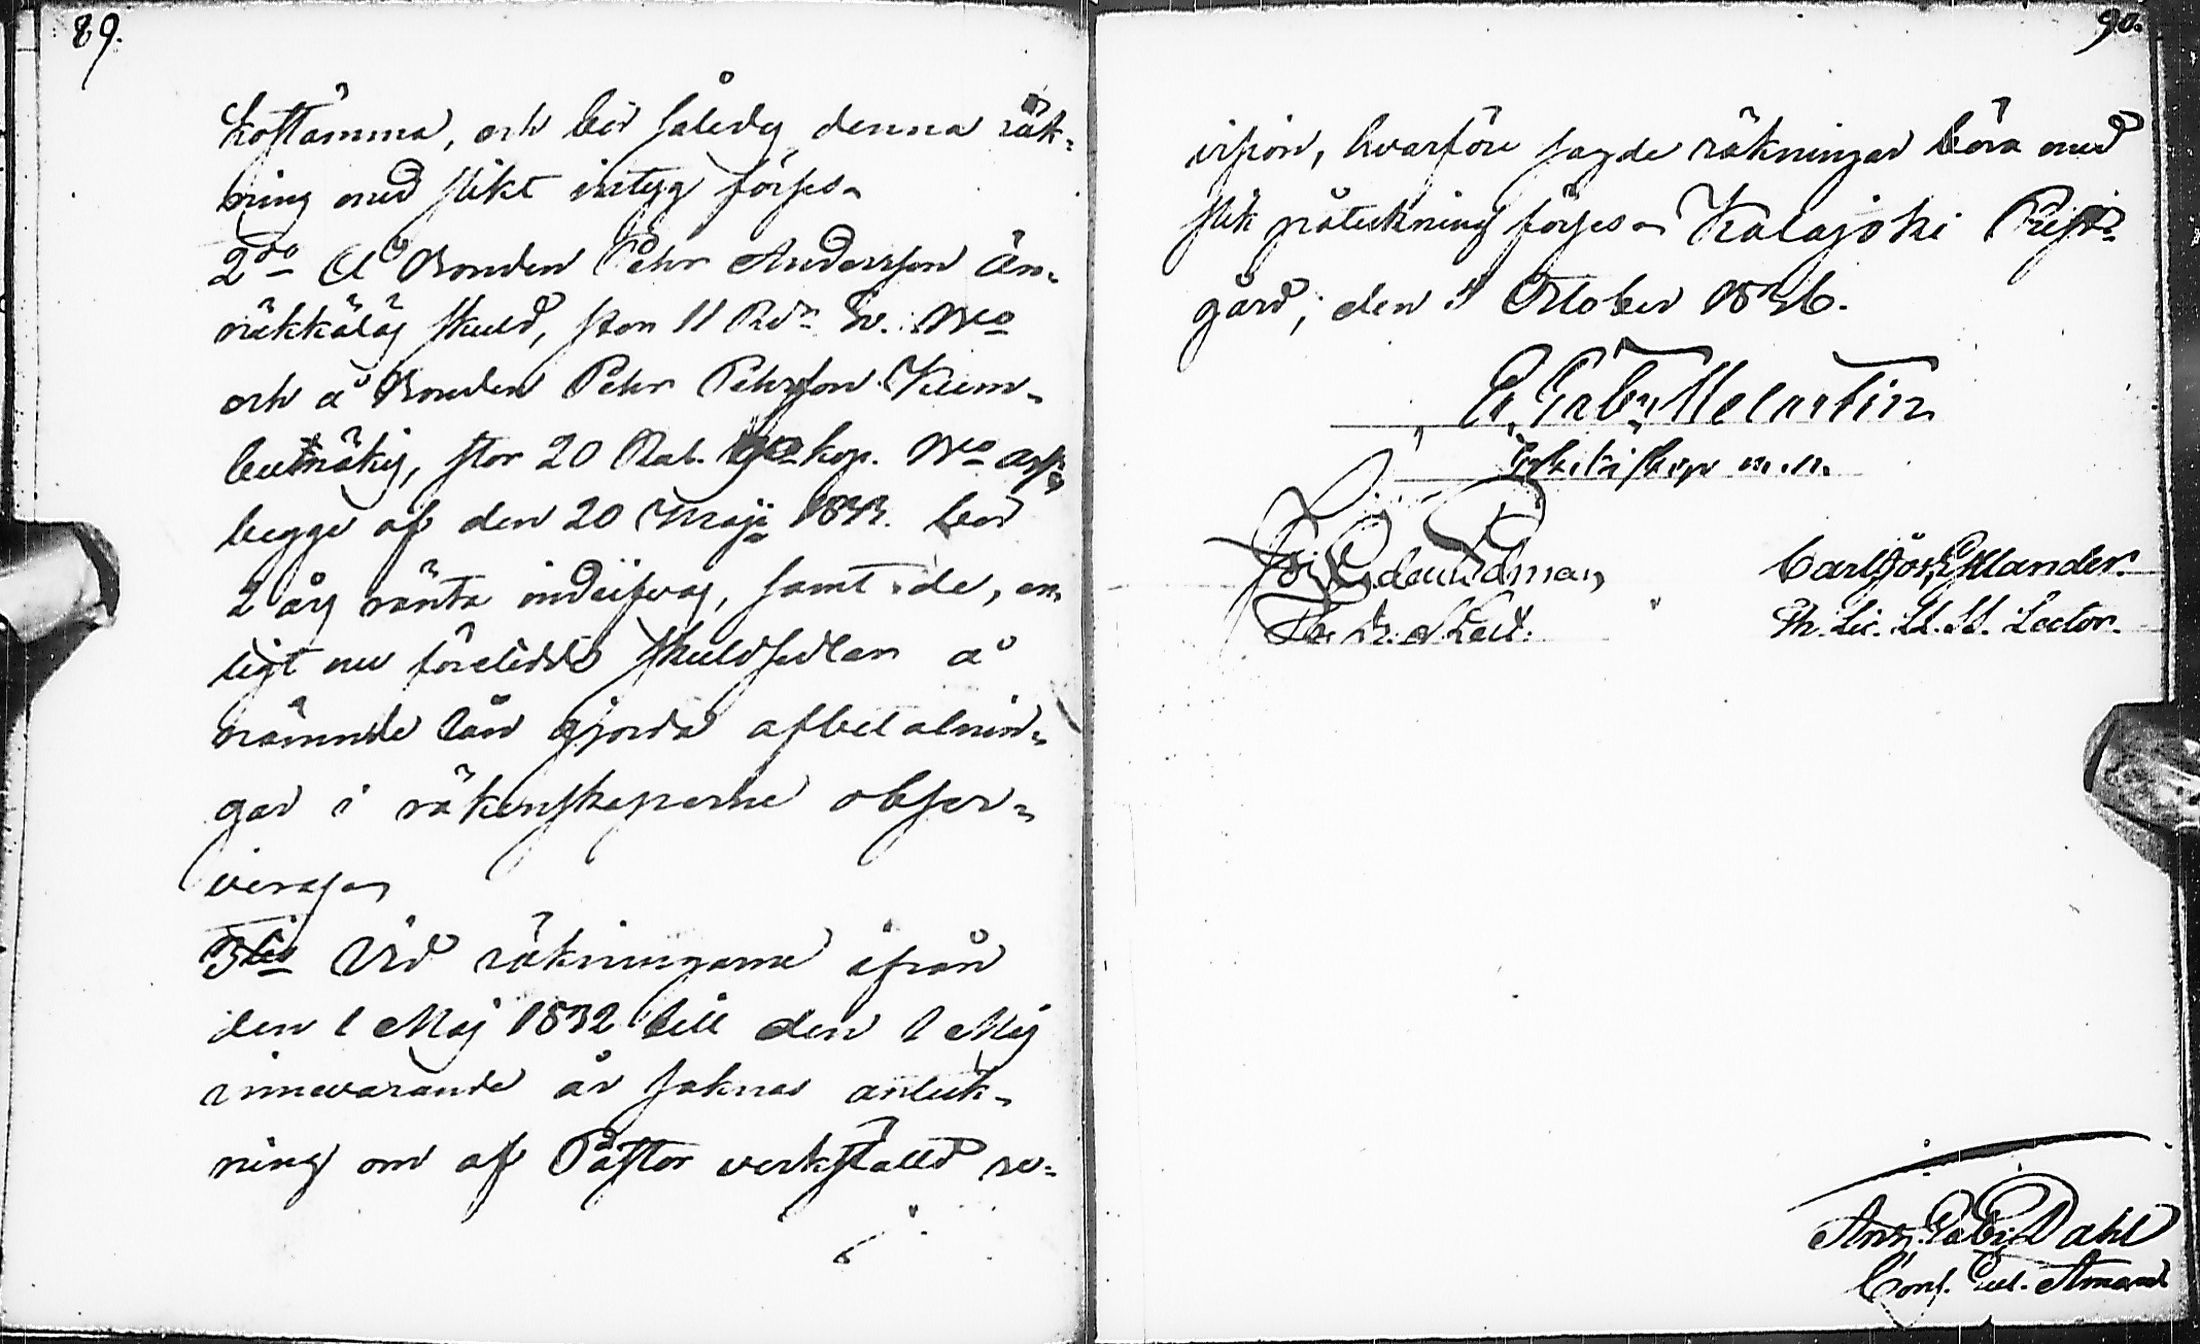 89.
kostämma, och bör således denna räk=
ning med slikt intyg förses.
2do Å Bonden Pehr Andersson Än=
näkkäläs skuld, stor 11 Rdr
och å Bonden Pehr Pehrsson Kum=
stor 20 Rub. kop. Bco ass.
begge af den 20 Maji 1833. bör
2 års ränta indrifvas, samt de, en=
ligt nu företedde skuldsedlar å
nämnde lån gjorda afbetalnin=
gar i räkenskaperne obser=
veras.
3tio Vid räkningarne ifrån
den 1 Maj 1832 till den 1 Maj
innevarande år saknas anteck=
ning om af Pastor verkställd re=
90.
vision, hvarföre sagde räkningar böra med
slik påteckning förses. Kalajoki Prest=
gård, den 4 October 1836.
E. Gabr. Melartin
Erkebiskop m.m.
Edman
Carl Gust. Estlander.
Ph. Lic. Lector.
And. Gabr. Dahl
Cons. Eccl. Amanu.